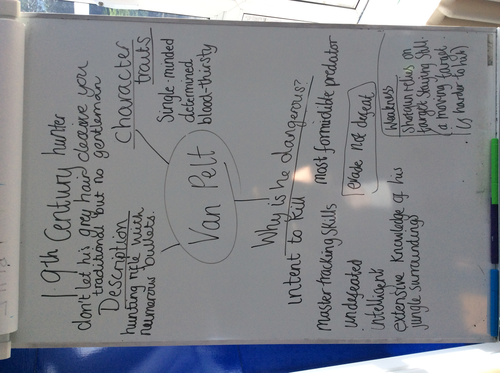 19th Century hunter
don't let his grey hair deceive you
traditional but no gentleman
Description
hunting rifle with
neumerous bullets
Character
traits
Single-minded
determined
blood-thirsty
Van Pelt
Why is he dangerous?
intent to kill
master tracking skills
undefeated
intelligent
extensive knowledge of his
jungle surroundings
most formidible predator
evade not defeat
Weakness
Shotgun relies on
target staying still.
(a moving target
is harder to hit)